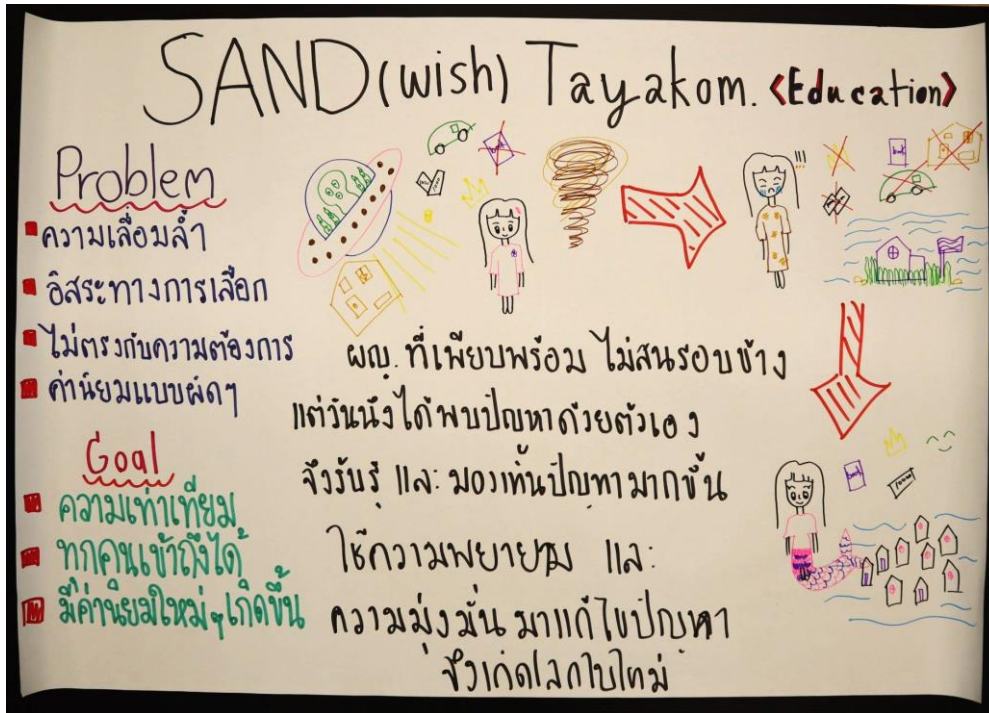 SAND(wish) Tayakom. <Education>
Problem
ความเลื่อมล้ำ
อิสระทางการเลือก
ไม่ตรงกับความต้องการ
ค่านิยมแบบผิดๆ
Goal
ความเท่าเทียม
ทุกคนเข้าถึงได้
มีค่านิยมใหม่ๆเกิดขึ้น
!!!
book
book
ผญ. ที่เพียบพร้อม ไม่สนรอบข้าง
แต่วันนึงได้พบปัญหาด้วยตัวเอง
จึงรับรู้ และ มองเห็นปัญหามากขึ้น
ใช้ความพยายาม และ
ความมุ่งมั่น มาแก้ไขปัญหา
จึงเกิดโลกใบใหม่